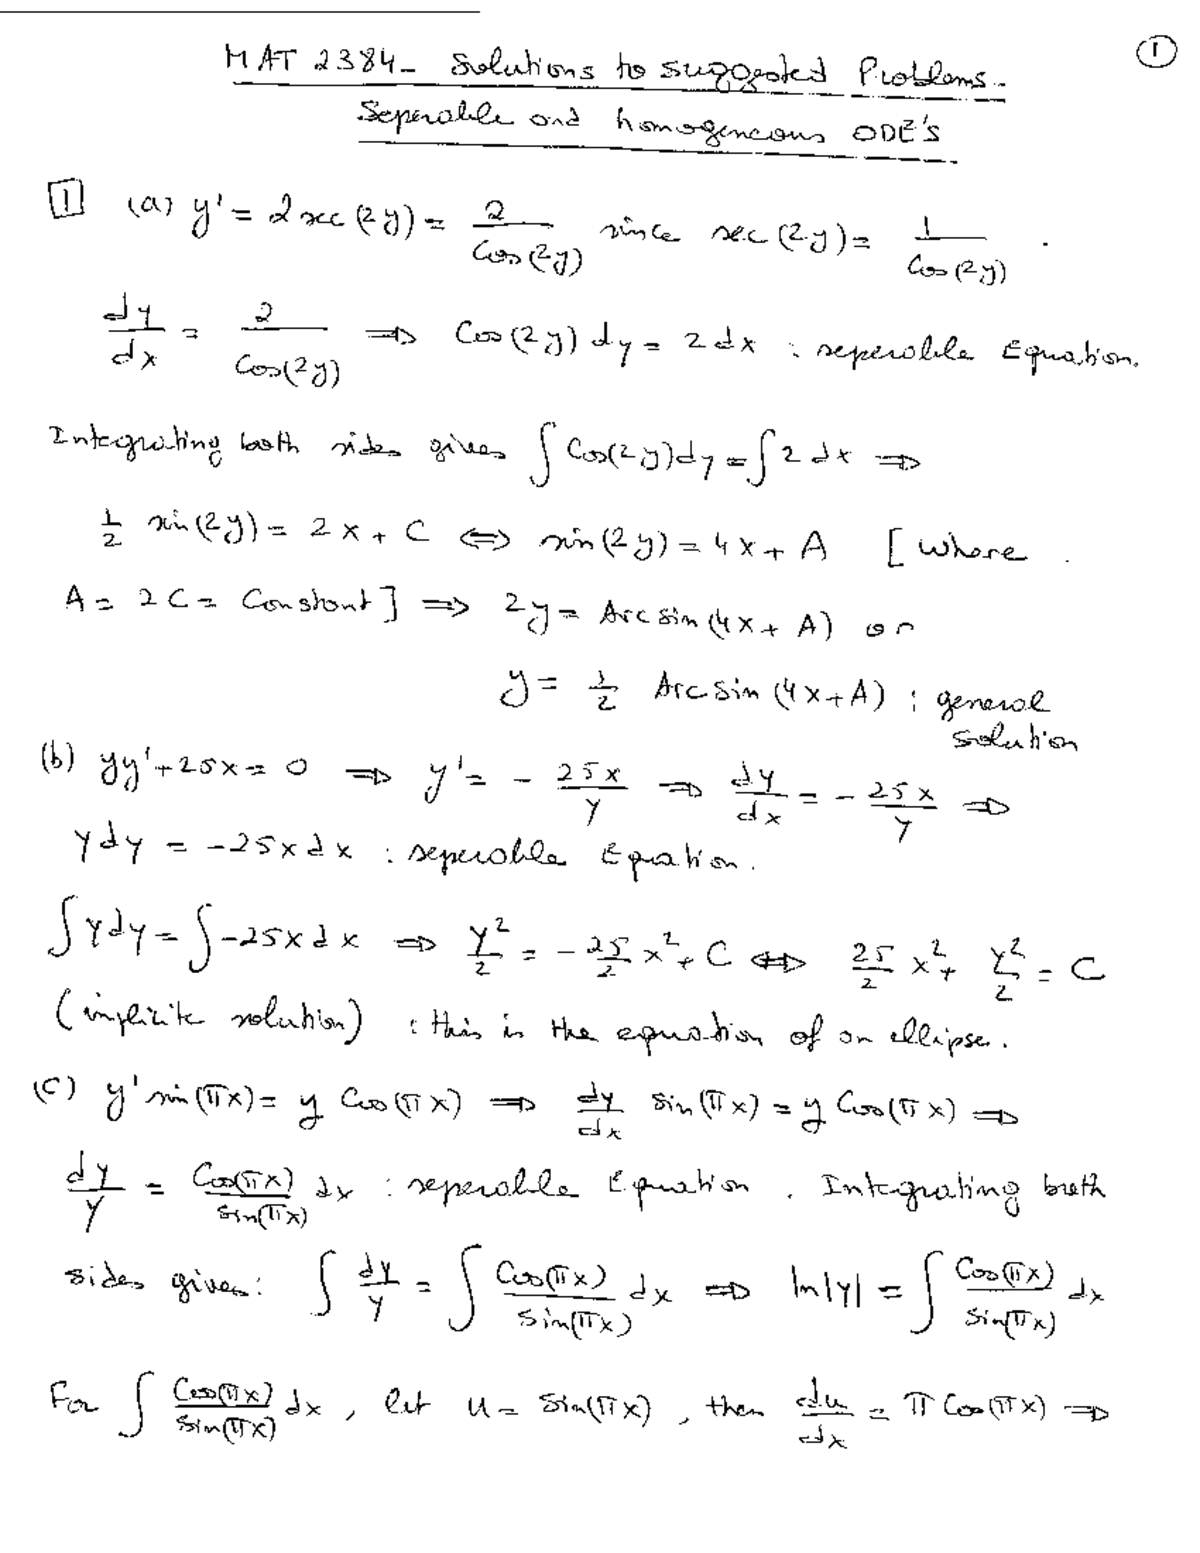 ①
MAT 2384 - Solutions to suggested Problems.
Seperable and homogeneous ODE's
1 (a) y' = 2 sec(2y) = 2/Cos(2y) since sec(2y) = 1/Cos(2y).
dy/dx = 2/Cos(2y) ⇒ Cos(2y) dy = 2 dx : seperable Equation.
Integrating both sides gives ∫ Cos(2y) dy = ∫ 2 dx ⇒
1/2 sin(2y) = 2x + C ⇔ sin(2y) = 4x + A [where
A = 2C = Constant] ⇒ 2y = Arcsin(4x + A) or
y = 1/2 Arcsin(4x+A) : general
solution
(b) yy' + 25x = 0 ⇒ y' = - 25x/y ⇒ dy/dx = - 25x/y ⇒
ydy = -25xdx : seperable Equation.
∫ydy = ∫-25xdx ⇒ y²/2 = - 25/2 x² + C ⇔ 25/2 x² + y²/2 = C
(implicite solution) : this is the equation of an ellipse.
(c) y' sin(πx) = y Cos(πx) ⇒ dy/dx sin(πx) = y Cos(πx) ⇒
dy/y = Cos(πx)/sin(πx) dx : seperable Equation. Integrating both
sides gives: ∫ dy/y = ∫ Cos(πx)/sin(πx) dx ⇒ ln|y| = ∫ Cos(πx)/sin(πx) dx
For ∫ Cos(πx)/sin(πx) dx, let u = sin(πx), then du/dx = π Cos(πx) ⇒